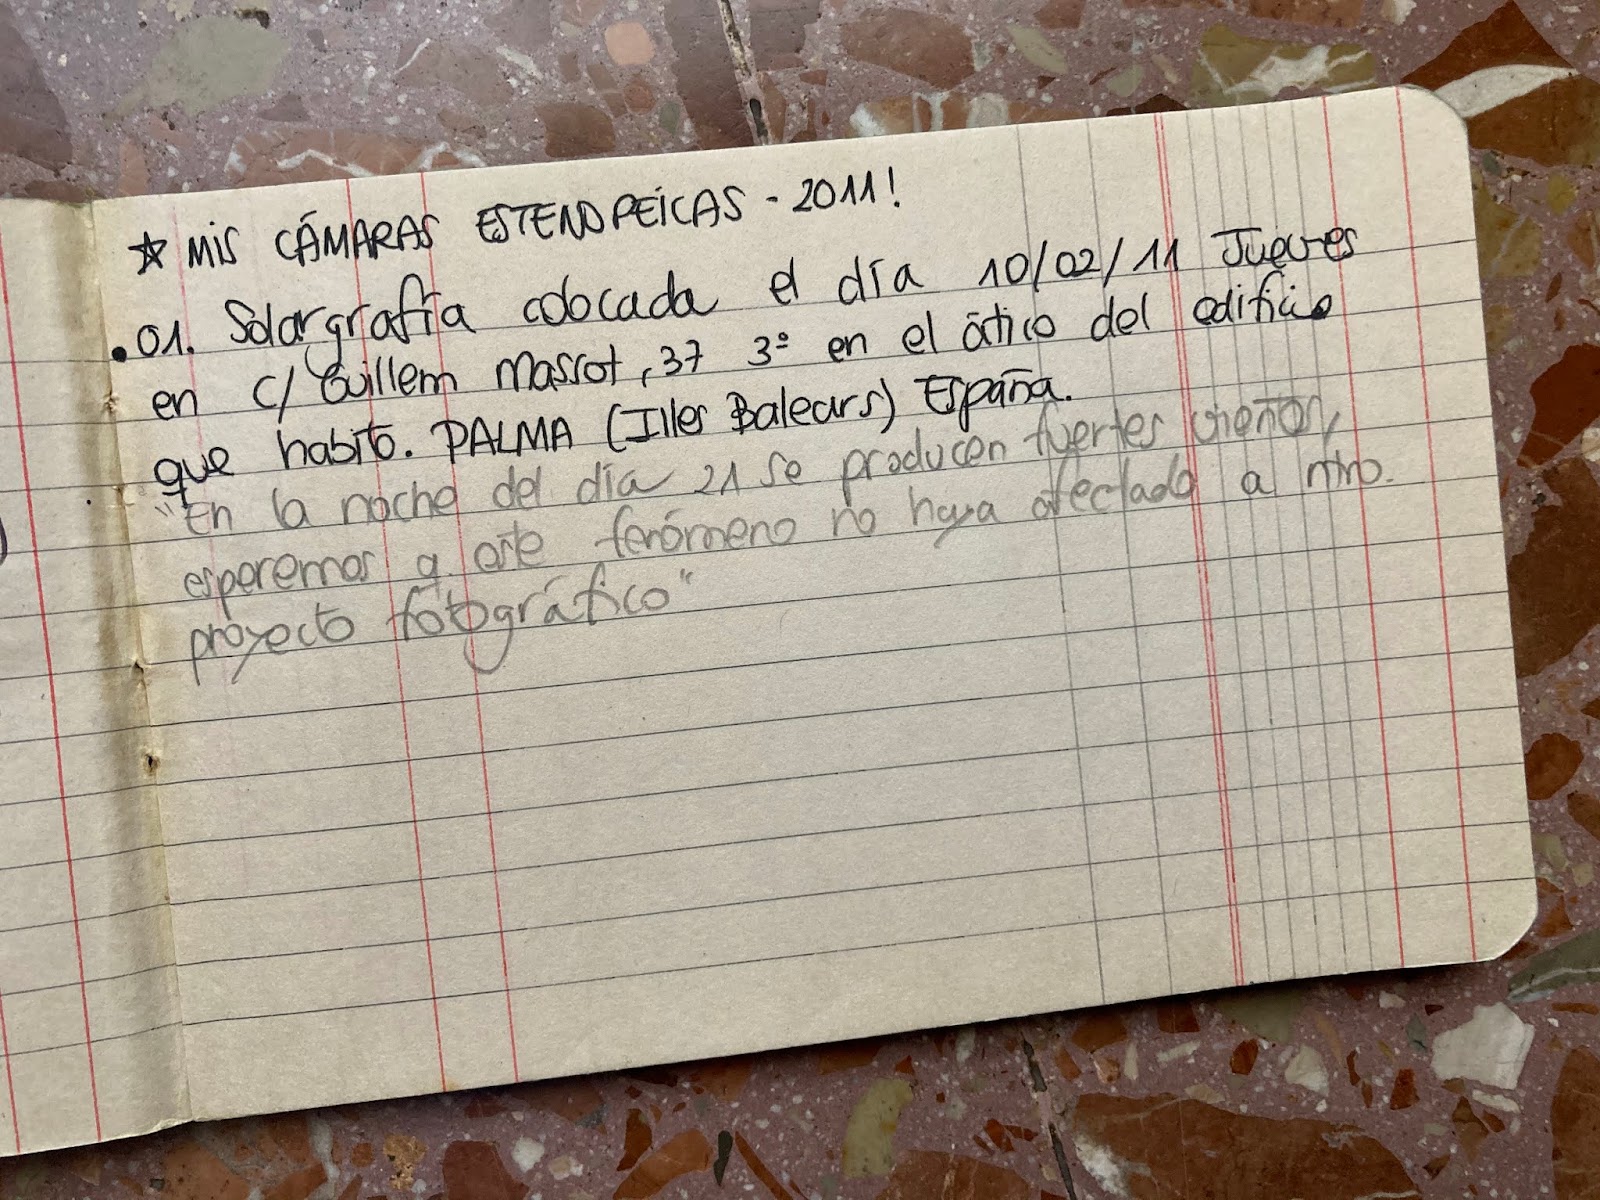 ☆ MIS CÁMARAS ESTENOPEICAS - 2011!
• 01. Solargrafía colocada el día 10/02/11 Jueves
en C/ Guillem Massot, 37 3º en el ático del edificio
que habito. PALMA (Illes Balears) España.
"En la noche del día 21 se producen fuertes vientos,
esperemos q. este fenómeno no haya afectado a ntro.
proyecto fotográfico"